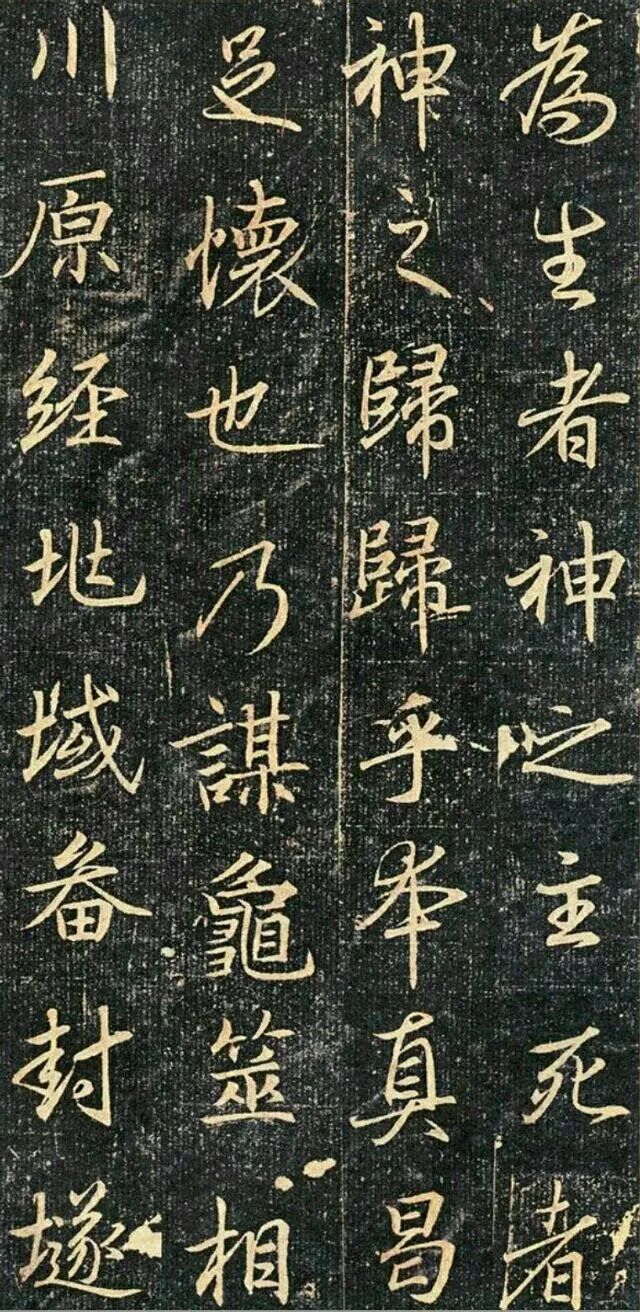 為生者神之主死者
神之歸歸乎本真曷
足懷也乃謀龜筮相
川原經兆域备封